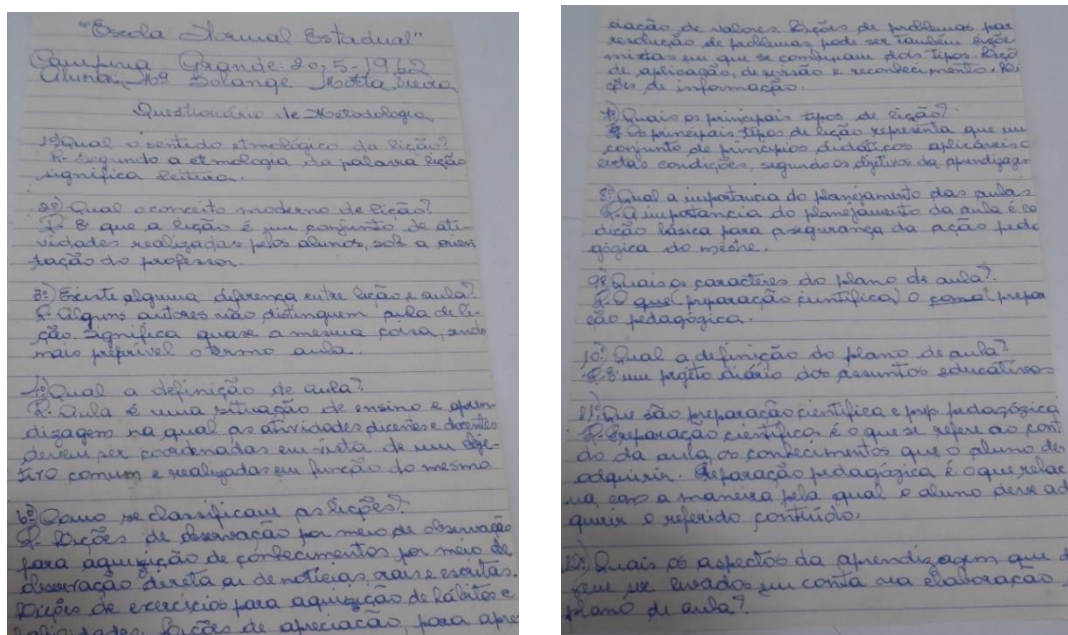 "Escola Normal Estadual"
Campina Grande 20-5-1962
Aluna, Mª Solange Motta Vieira
Questionário de Metodologia
1º) Qual o sentido etmológico da lição?
R- Segundo a etmologia da palavra lição
significa leitura.
2º) Qual o conceito moderno de lição?
R- É que a lição é um conjunto de ati-
vidades realizadas pelos alunos, sob a orien
tação do professor.
3º) Existe alguma diferença entre lição e aula?
R- Alguns autores não distinguem aula de li-
ção. significa quase a mesma coisa, sendo
mais preferível o termo aula.
4º) Qual a definição de aula?
R- Aula é uma situação de ensino e apren
dizagem na qual as atividades discentes e docentes
devem ser coordenadas em vista de um obje-
tivo comum e realizadas em função do mesmo
6º) Como se classificam as lições?
R- Lições de observação por meio de observação
para aquisição de conhecimentos por meio de
observação direta ou de notícias orais e escritas.
Lições de exercícios para aquisição de hábitos e
habilidades. Lições de apreciação, para apre
ciação de valores. Lições de problemas par
resolução de problemas, pode ser também liçõe
mistas em que se combinam dois tipos. Liçõ
de aplicação, de revisão e reconhecimento. Li
ções de informação.
7º) Quais os principais tipos de lição?
R Os principais tipos de lição representa que um
conjunto de princípios didáticos aplicáveis
certas condições, segundo os objetivos da aprendizagem
8º) Qual a importância do planejamento das aulas
R- A importancia do planejamento da aula é co
dição básica para a segurança da ação peda
gógica do mestre.
9º) Quais os caracteres do plano de aula?
R- O que (preparação científica) o como (prepar
ção pedagógica.
10º) Qual a definição do plano de aula?
R- É um projeto diário dos assuntos educativos
11º) Que são preparação científica e prep. pedagógica
R- Preparação científica é o que se refere ao cont
do da aula, os conhecimentos que o aluno dev
adquirir. Preparação pedagógica é o que relac
na com a maneira pela qual o aluno deve ad
quirir o referido conteúdo.
12º) Quais os aspectos da aprendizagem que d
vem ser levados em conta na elaboração
plano de aula?